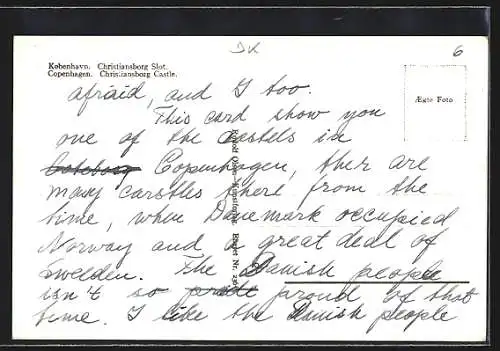 DK
6
København. Christiansborg Slot.
Copenhagen. Christiansborg Castle.
Ægte Foto
afraid, and I too.
This card show you
one of the castels in
Goteborg Copenhagen, ther are
many carstles there from the
time, when Danemark occupied
Norway and a great deal of
Swelden. The Danish people
isn't so proud of that
time. I like the Danish people